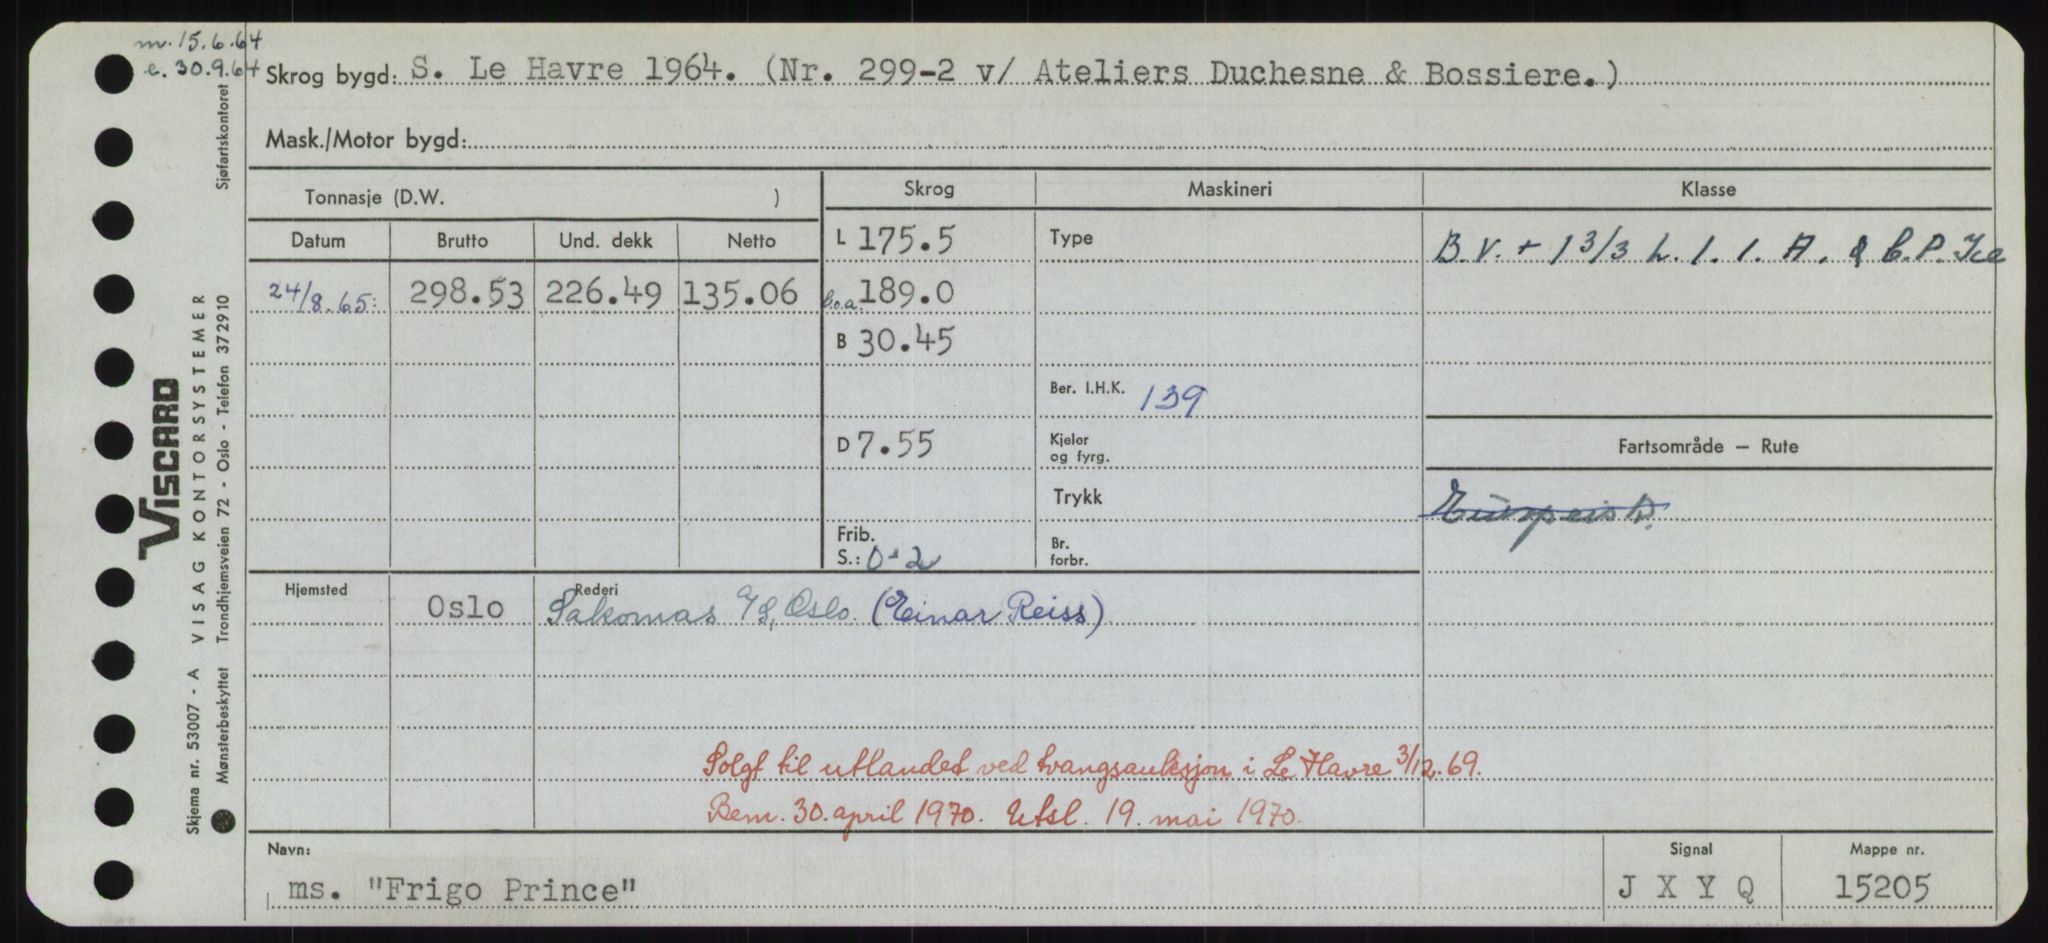 m. 15.6.64
e. 30.9.64
Skrog bygd: S. Le Havre 1964. (Nr. 299-2 v/ Ateliers Duchesne & Bossiere.)
Mask./Motor bygd:
Tonnasje (D.W. )
Skrog Maskineri Klasse
Datum Brutto Und. dekk Netto
L 175.5 Type B.V. + 1 3/3 L. 1. 1. A. & C.P. Ice
24/8.65: 298.53 226.49 135.06 l.o.a. 189.0
B 30.45
Ber. I.H.K. 139
D 7.55 Kjeler og fyrg.
Fartsområde — Rute
Trykk
Europeisk.
Frib.
S.: 0-2
Br. forbr.
Hjemsted Oslo Rederi Sakomas I/S, Oslo. (Einar Reiss)
Solgt til utlandet ved tvangsauksjon i Le Havre 3/12.69.
Bem. 30. april 1970. Utsl. 19. mai 1970.
Navn: Signal Mappe nr.
ms. "Frigo Prince" J X Y Q 15205
Sjøfartskontoret
VISCARD
VISAG KONTORSYSTEMER
Skjema nr. 53007 - A
Mønsterbeskyttet Trondhjemsveien 72 - Oslo - Telefon 372910